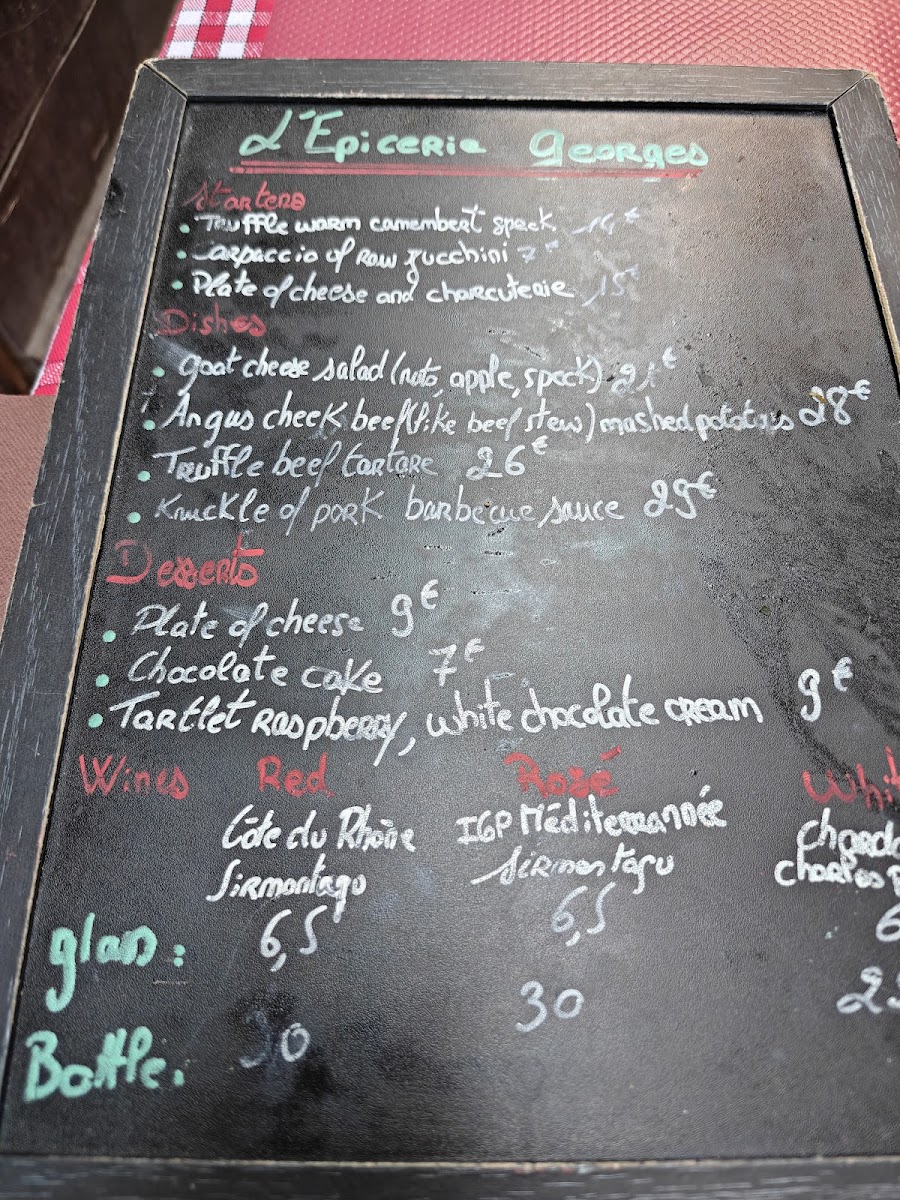 L'Epicerie Georges
Starters
• Truffle warm camembert speck
• Carpaccio of raw zucchini 7€
• Plate of cheese and charcuterie 15€
Dishes
• goat cheese salad (nuts, apple, speck)
• Angus cheek beef (like beef stew) mashed potatoes 28€
• Truffle beef tartare 26€
• Knuckle of pork barbecue sauce 29€
Desserts
• Plate of cheese 9€
• Chocolate cake 7€
• Tartlet raspberry, white chocolate cream 9€
Wines Red Rosé Whit
Côte du Rhône IGP Méditerrannée Chardo
Sirmontagu Sirmontagu Charles
glass: 6,5 6,5 6
Bottle: 30 30